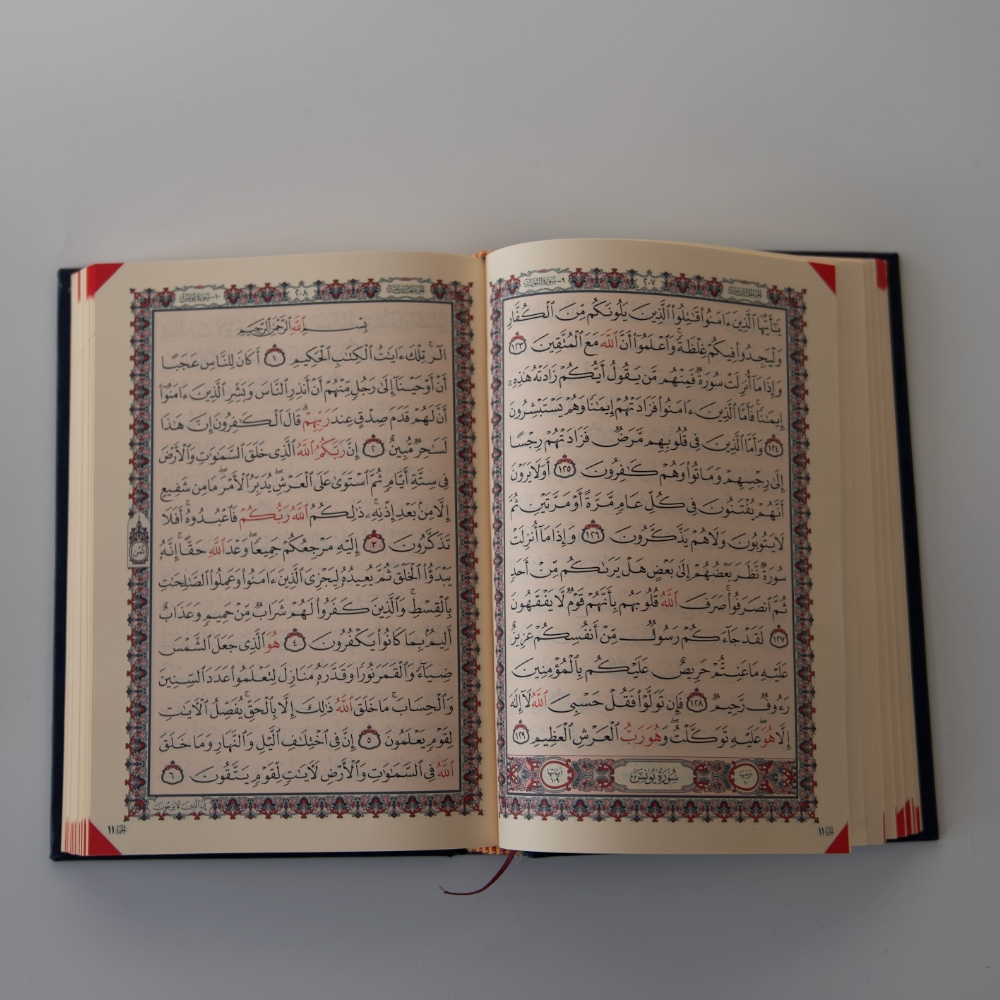 ٩- سورة التوبة
٢٠٧
الجزء الحادي عشر
يَٰٓأَيُّهَا ٱلَّذِينَ ءَامَنُوا۟ قَٰتِلُوا۟ ٱلَّذِينَ يَلُونَكُم مِّنَ ٱلْكُفَّارِ
وَلْيَجِدُوا۟ فِيكُمْ غِلْظَةً ۚ وَٱعْلَمُوٓا۟ أَنَّ ٱللَّهَ مَعَ ٱلْمُتَّقِينَ ١٢٣
وَإِذَا مَآ أُنزِلَتْ سُورَةٌ فَمِنْهُم مَّن يَقُولُ أَيُّكُمْ زَادَتْهُ هَٰذِهِۦٓ
إِيمَٰنًا ۚ فَأَمَّا ٱلَّذِينَ ءَامَنُوا۟ فَزَادَتْهُمْ إِيمَٰنًا وَهُمْ يَسْتَبْشِرُونَ
١٢٤ وَأَمَّا ٱلَّذِينَ فِى قُلُوبِهِم مَّرَضٌ فَزَادَتْهُمْ رِجْسًا
إِلَىٰ رِجْسِهِمْ وَمَاتُوا۟ وَهُمْ كَٰفِرُونَ ١٢٥ أَوَلَا يَرَوْنَ
أَنَّهُمْ يُفْتَنُونَ فِى كُلِّ عَامٍ مَّرَّةً أَوْ مَرَّتَيْنِ ثُمَّ
لَا يَتُوبُونَ وَلَا هُمْ يَذَّكَّرُونَ ١٢٦ وَإِذَا مَآ أُنزِلَتْ
سُورَةٌ نَّظَرَ بَعْضُهُمْ إِلَىٰ بَعْضٍ هَلْ يَرَىٰكُم مِّنْ أَحَدٍ
ثُمَّ ٱنصَرَفُوا۟ ۚ صَرَفَ ٱللَّهُ قُلُوبَهُم بِأَنَّهُمْ قَوْمٌ لَّا يَفْقَهُونَ
١٢٧ لَقَدْ جَآءَكُمْ رَسُولٌ مِّنْ أَنفُسِكُمْ عَزِيزٌ
عَلَيْهِ مَا عَنِتُّمْ حَرِيصٌ عَلَيْكُم بِٱلْمُؤْمِنِينَ
رَءُوفٌ رَّحِيمٌ ١٢٨ فَإِن تَوَلَّوْا۟ فَقُلْ حَسْبِىَ ٱللَّهُ لَآ إِلَٰهَ
إِلَّا هُوَ ۖ عَلَيْهِ تَوَكَّلْتُ ۖ وَهُوَ رَبُّ ٱلْعَرْشِ ٱلْعَظِيمِ ١٢٩
سُورَةُ يُونُسَ
الجزء ١١
١٠- سورة يونس
٢٠٨
الجزء الحادي عشر
بِسْمِ ٱللَّهِ ٱلرَّحْمَٰنِ ٱلرَّحِيمِ
الٓر ۚ تِلْكَ ءَايَٰتُ ٱلْكِتَٰبِ ٱلْحَكِيمِ ١ أَكَانَ لِلنَّاسِ عَجَبًا
أَنْ أَوْحَيْنَآ إِلَىٰ رَجُلٍ مِّنْهُمْ أَنْ أَنذِرِ ٱلنَّاسَ وَبَشِّرِ ٱلَّذِينَ ءَامَنُوٓا۟
أَنَّ لَهُمْ قَدَمَ صِدْقٍ عِندَ رَبِّهِمْ ۗ قَالَ ٱلْكَٰفِرُونَ إِنَّ هَٰذَا
لَسَٰحِرٌ مُّبِينٌ ٢ إِنَّ رَبَّكُمُ ٱللَّهُ ٱلَّذِى خَلَقَ ٱلسَّمَٰوَٰتِ وَٱلْأَرْضَ
فِى سِتَّةِ أَيَّامٍ ثُمَّ ٱسْتَوَىٰ عَلَى ٱلْعَرْشِ ۖ يُدَبِّرُ ٱلْأَمْرَ ۖ مَا مِن شَفِيعٍ
إِلَّا مِنۢ بَعْدِ إِذْنِهِۦ ۚ ذَٰلِكُمُ ٱللَّهُ رَبُّكُمْ فَٱعْبُدُوهُ ۚ أَفَلَا
تَذَكَّرُونَ ٣ إِلَيْهِ مَرْجِعُكُمْ جَمِيعًا ۖ وَعْدَ ٱللَّهِ حَقًّا ۚ إِنَّهُۥ
يَبْدَؤُا۟ ٱلْخَلْقَ ثُمَّ يُعِيدُهُۥ لِيَجْزِىَ ٱلَّذِينَ ءَامَنُوا۟ وَعَمِلُوا۟ ٱلصَّٰلِحَٰتِ
بِٱلْقِسْطِ ۚ وَٱلَّذِينَ كَفَرُوا۟ لَهُمْ شَرَابٌ مِّنْ حَمِيمٍ وَعَذَابٌ
أَلِيمٌۢ بِمَا كَانُوا۟ يَكْفُرُونَ ٤ هُوَ ٱلَّذِى جَعَلَ ٱلشَّمْسَ
ضِيَآءً وَٱلْقَمَرَ نُورًا وَقَدَّرَهُۥ مَنَازِلَ لِتَعْلَمُوا۟ عَدَدَ ٱلسِّنِينَ
وَٱلْحِسَابَ ۚ مَا خَلَقَ ٱللَّهُ ذَٰلِكَ إِلَّا بِٱلْحَقِّ ۚ يُفَصِّلُ ٱلْءَايَٰتِ
لِقَوْمٍ يَعْلَمُونَ ٥ إِنَّ فِى ٱخْتِلَٰفِ ٱلَّيْلِ وَٱلنَّهَارِ وَمَا خَلَقَ
ٱللَّهُ فِى ٱلسَّمَٰوَٰتِ وَٱلْأَرْضِ لَءَايَٰتٍ لِّقَوْمٍ يَتَّقُونَ ٦
إن الذين لا يرجون
الجزء ١١